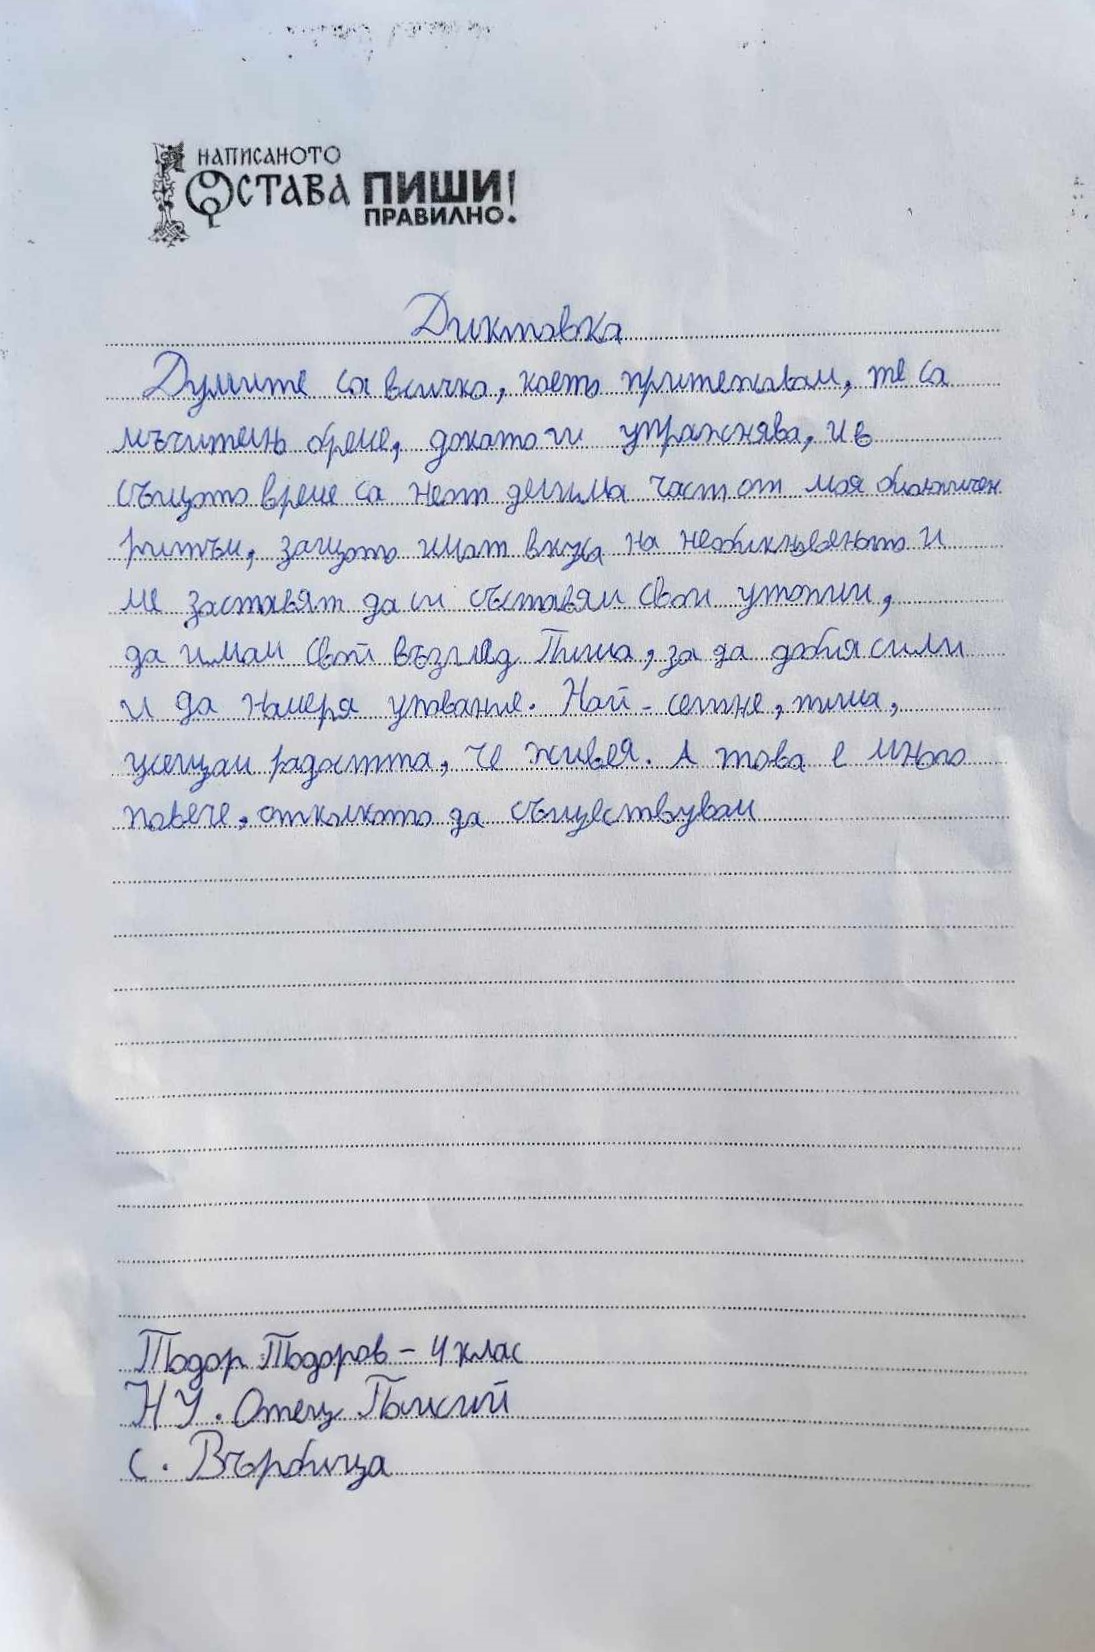 НАПИСАНОТО
ОСТАВА ПИШИ!
ПРАВИЛНО.
Диктовка
Думите са всичко, което притежавам, те са
мъчитень бреме, докато ги упражнява, и в
същото време са неот делима част от моя биологичен
ритъм, защото имат вкуса на необикновеното и
ме заставят да си съставям свои утопии,
да имам свой възглед Пиша, за да добия сили
и да намеря упование. Най - сетне, пиша,
усещам радостта, че живея. А това е много
повече, отколкото да съществувам
Тодор Тодоров - 4 клас
НУ. Отец Паисий
с. Върбица